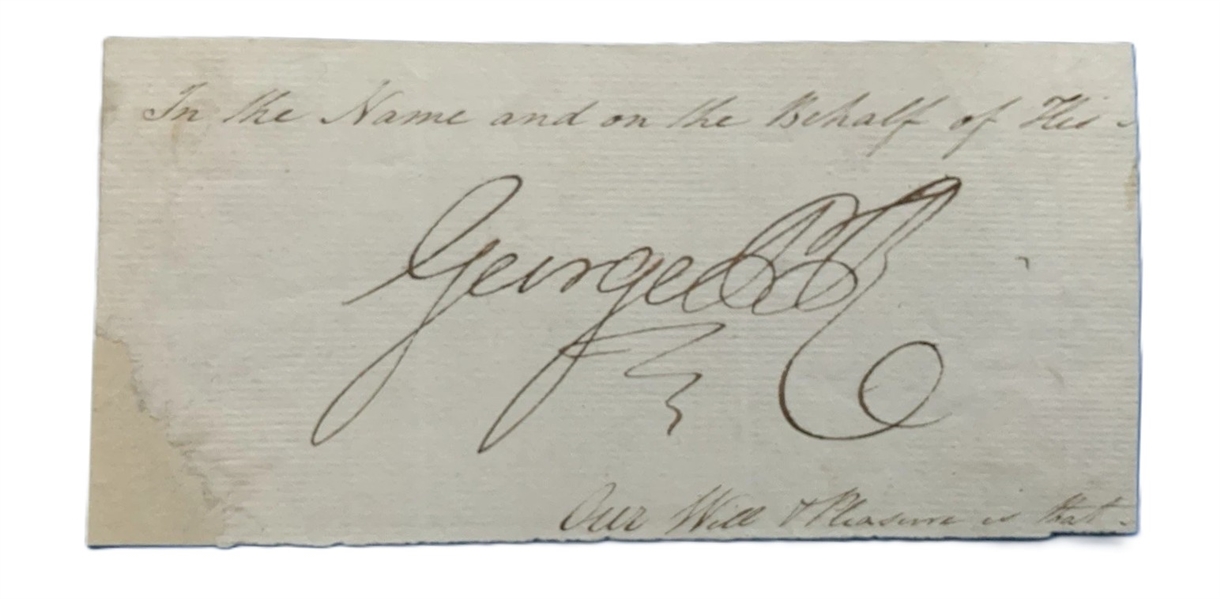 In the Name and on the Behalf of His
George PR
Our Will & Pleasure is that